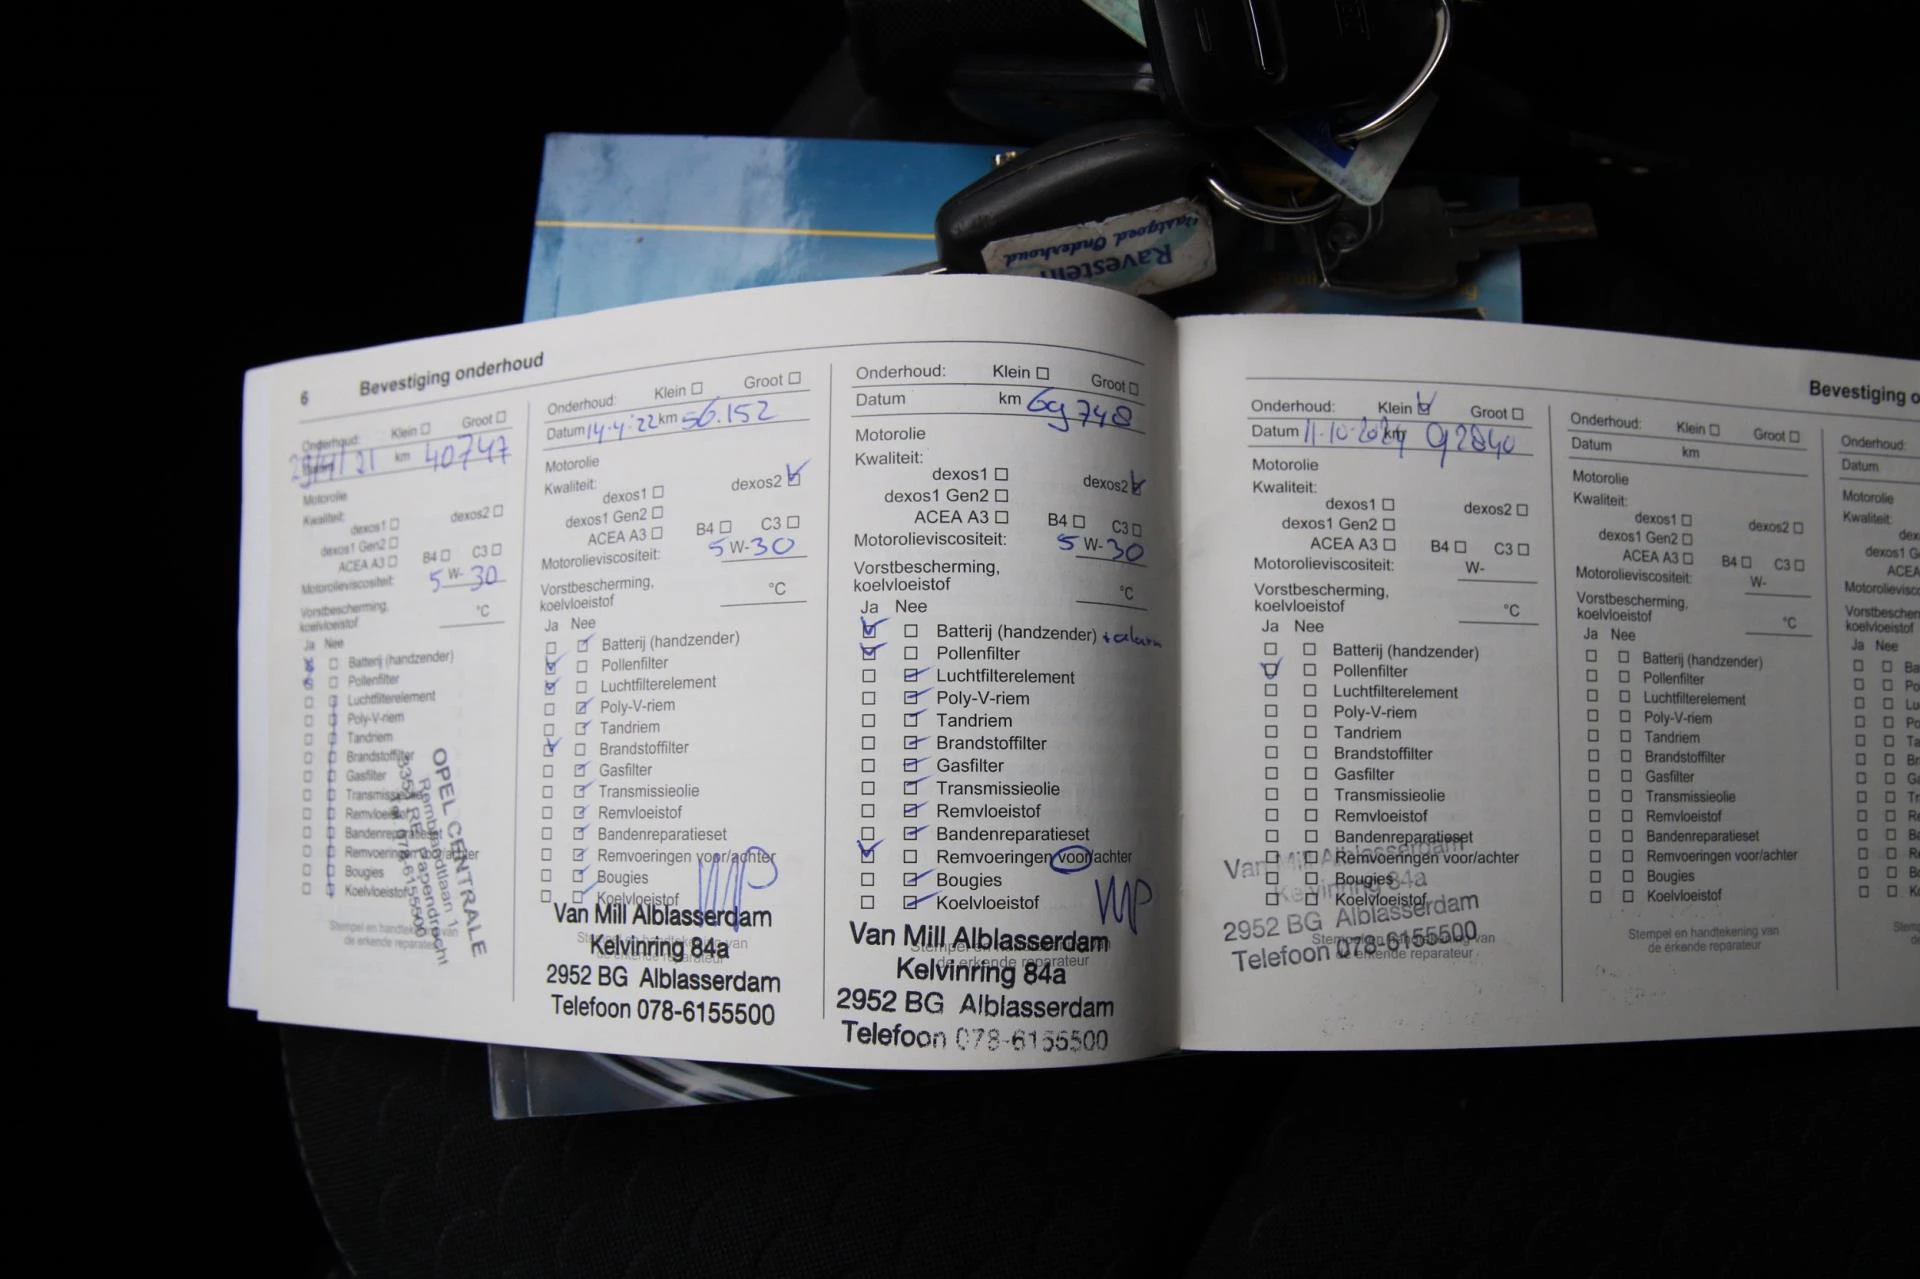 Ravestein
Vastgoed Onderhoud
6 Bevestiging onderhoud
Onderhoud: Klein Groot
29/4/21 km 40747
Motorolie
Kwaliteit:
dexos1 dexos2
dexos1 Gen2
ACEA A3 B4 C3
Motorolieviscositeit: 5 W-30
Vorstbescherming,
koelvloeistof °C
Ja Nee
Batterij (handzender)
Pollenfilter
Luchtfilterelement
Poly-V-riem
Tandriem
Brandstoffilter
Gasfilter
Transmissieolie
Remvloeistof
Bandenreparatieset
Remvoeringen voor/achter
Bougies
Koelvloeistof
Stempel en handtekening van
de erkende reparateur
OPEL CENTRALE
Rembrandtlaan 1
Papendrecht
078-6155500
Onderhoud: Klein Groot
Datum 14-4-'22 km 56.152
Motorolie
Kwaliteit:
dexos1 dexos2
dexos1 Gen2
ACEA A3 B4 C3
Motorolieviscositeit: 5 W-30
Vorstbescherming,
koelvloeistof °C
Ja Nee
Batterij (handzender)
Pollenfilter
Luchtfilterelement
Poly-V-riem
Tandriem
Brandstoffilter
Gasfilter
Transmissieolie
Remvloeistof
Bandenreparatieset
Remvoeringen voor/achter
Bougies
Koelvloeistof
Stempel en handtekening van
de erkende reparateur
Van Mill Alblasserdam
Kelvinring 84a
2952 BG Alblasserdam
Telefoon 078-6155500
Onderhoud: Klein Groot
Datum km 69748
Motorolie
Kwaliteit:
dexos1 dexos2
dexos1 Gen2
ACEA A3 B4 C3
Motorolieviscositeit: 5 W-30
Vorstbescherming,
koelvloeistof °C
Ja Nee
Batterij (handzender) + alarm
Pollenfilter
Luchtfilterelement
Poly-V-riem
Tandriem
Brandstoffilter
Gasfilter
Transmissieolie
Remvloeistof
Bandenreparatieset
Remvoeringen voor/achter
Bougies
Koelvloeistof
Stempel en handtekening van
de erkende reparateur
Van Mill Alblasserdam
Kelvinring 84a
2952 BG Alblasserdam
Telefoon 078-6155500
Bevestiging o
Onderhoud: Klein Groot
Datum 11-10-2024 km 92840
Motorolie
Kwaliteit:
dexos1 dexos2
dexos1 Gen2
ACEA A3 B4 C3
Motorolieviscositeit: W-
Vorstbescherming,
koelvloeistof °C
Ja Nee
Batterij (handzender)
Pollenfilter
Luchtfilterelement
Poly-V-riem
Tandriem
Brandstoffilter
Gasfilter
Transmissieolie
Remvloeistof
Bandenreparatieset
Remvoeringen voor/achter
Bougies
Koelvloeistof
Stempel en handtekening van
de erkende reparateur
Van Mill Alblasserdam
Kelvinring 84a
2952 BG Alblasserdam
Telefoon 078-6155500
Onderhoud: Klein Groot
Datum km
Motorolie
Kwaliteit:
dexos1 dexos2
dexos1 Gen2
ACEA A3 B4 C3
Motorolieviscositeit: W-
Vorstbescherming,
koelvloeistof °C
Ja Nee
Batterij (handzender)
Pollenfilter
Luchtfilterelement
Poly-V-riem
Tandriem
Brandstoffilter
Gasfilter
Transmissieolie
Remvloeistof
Bandenreparatieset
Remvoeringen voor/achter
Bougies
Koelvloeistof
Stempel en handtekening van
de erkende reparateur
Onderhoud:
Datum
Motorolie
Kwaliteit:
dex
dexos1 G
ACEA
Motorolievisco
Vorstbescher
koelvloeistof
Ja Nee
Ba
Po
Lu
Po
Ta
Br
Ga
Tr
Re
Ba
Re
Bo
Ko